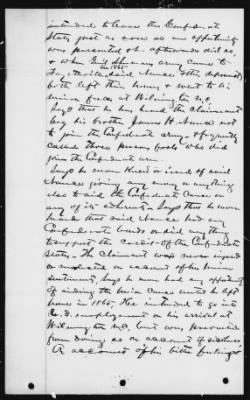 intended to leave the Confederate
States just as soon as an opportunity
was presented & he afterwards did so,
& when Genl Sherman army came to
in 1865
Fayetteville said Nunce & this deponent
both left their homes & went to the
Union forces at Wilmington N.C.
Says that he has heard the claimant
beg his brother James H. Nunce not
to join the Confederate army & frequently
called those persons fools who did
join the Confederate arm.
Says he never heard or heard of said
Nunce giving any money or anything
else to aid the Confederate cause or
any of its adherents. Says that he never
heard that said Nunce had any
Confederate bonds or did anything
to support the credit of the Confederate
States. The Claimant was never injured
or molested on account of his Union
sentiments. Says he never had any opportunity
of aiding the Union cause until he left
home in 1865. He intended to go into
employment on his arrival at
Wilmington N.C. but was prevented
from doing so on account of sickness.
On account of his bitter feelings